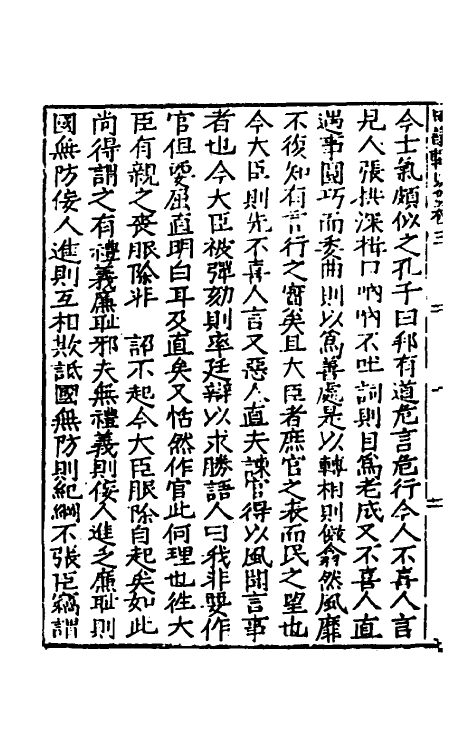 今士氣頗似之孔子曰邦有道危言危行今人不喜人言
見人張拱深揖口吶吶不吐詞則目為老成又不喜人直
遇事圓巧而委曲則以為善處是以轉相則傚翕然風靡
不復知有言行之實矣且大臣者庶官之表而民之望也
今大臣則先不喜人言又惡人直夫諫官得以風聞言事
者也今大臣被彈劾則率廷辯以求勝語人曰我非要作
官但要屈直明白耳及直矣又恬然作官此何理也徃大
臣有親之喪服除非 詔不起今大臣服除自起矣如此
尚得謂之有禮義廉耻邪夫無禮義則佞人進乏廉耻則
國無防佞人進則互相欺詆國無防則紀綱不張臣竊謂